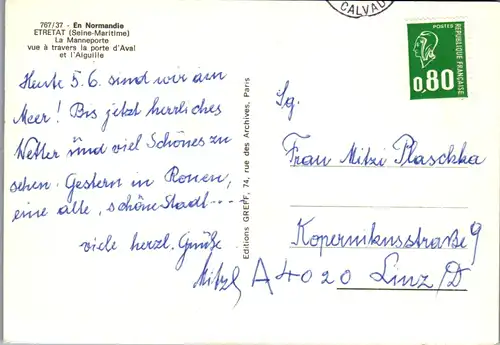 767/37 - En Normandie
ETRETAT (Seine-Maritime)
La Manneporte
vue à travers la porte d'Aval
et l'Aiguille
Heute 5.6. sind wir am
Meer! Bis jetzt herrliches
Wetter und viel Schönes zu
sehen. Gestern in Rouen,
eine alte, schöne Stadt----
viele herzl. Grüße
Mitzl
Editions GREFF, 74, rue des Archives, Paris
CALVAD
POSTES
RÉPUBLIQUE FRANÇAISE
0,80
Sg.
Frau Mitzi Plaschka
Kopernikusstraße 9
A 4020 Linz/D